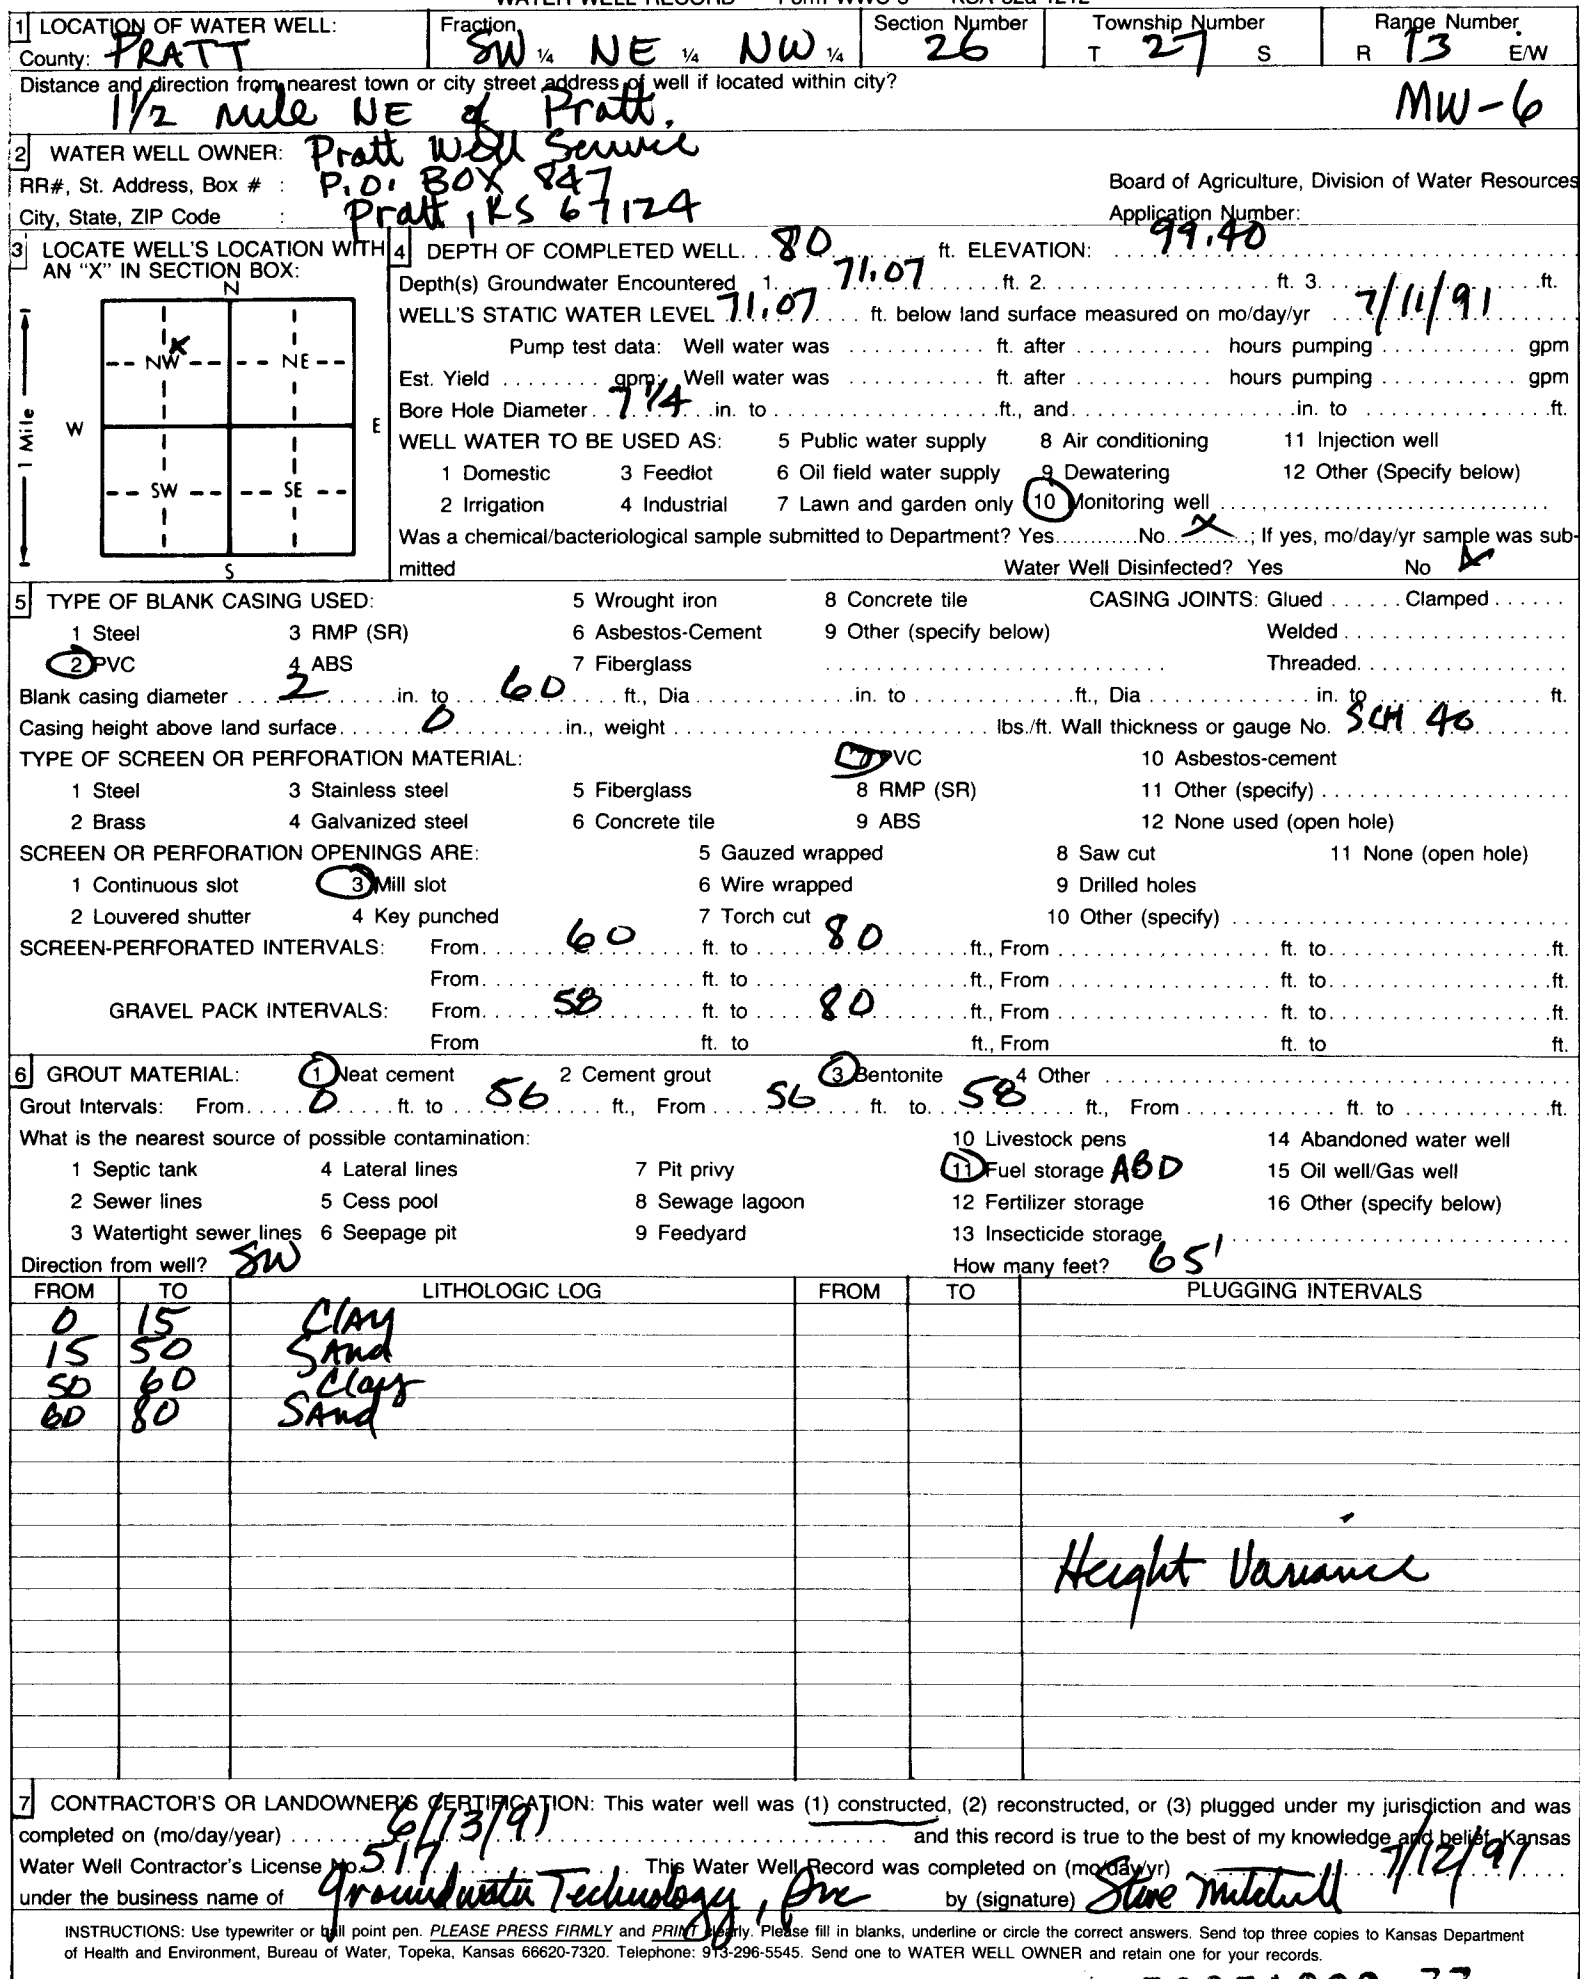 WATER WELL RECORD Form WWC-5 KSA 82a-1212
1 LOCATION OF WATER WELL: Fraction Section Number Township Number Range Number
County: PRATT SW ¼ NE ¼ NW ¼ 26 T 27 S R 13 E/W
Distance and direction from nearest town or city street address of well if located within city?
1 1/2 mile NE of Pratt. MW-6
2 WATER WELL OWNER: Pratt Well Service
RR#, St. Address, Box # : P.O. BOX 847 Board of Agriculture, Division of Water Resources
City, State, ZIP Code : Pratt, KS 67124 Application Number:
3 LOCATE WELL'S LOCATION WITH AN "X" IN SECTION BOX:
N
NW X NE
W E
SW SE
S
1 Mile
4 DEPTH OF COMPLETED WELL 80 ft. ELEVATION: 99.40
Depth(s) Groundwater Encountered 1. 71.07 ft. 2. ft. 3. ft.
WELL'S STATIC WATER LEVEL 71.07 ft. below land surface measured on mo/day/yr 7/11/91
Pump test data: Well water was ft. after hours pumping gpm
Est. Yield gpm: Well water was ft. after hours pumping gpm
Bore Hole Diameter 7 1/4 in. to ft., and in. to ft.
WELL WATER TO BE USED AS: 5 Public water supply 8 Air conditioning 11 Injection well
1 Domestic 3 Feedlot 6 Oil field water supply 9 Dewatering 12 Other (Specify below)
2 Irrigation 4 Industrial 7 Lawn and garden only 10 Monitoring well
Was a chemical/bacteriological sample submitted to Department? Yes No X ; If yes, mo/day/yr sample was sub-
mitted Water Well Disinfected? Yes No X
5 TYPE OF BLANK CASING USED: 5 Wrought iron 8 Concrete tile CASING JOINTS: Glued Clamped
1 Steel 3 RMP (SR) 6 Asbestos-Cement 9 Other (specify below) Welded
2 PVC 4 ABS 7 Fiberglass Threaded
Blank casing diameter 2 in. to 60 ft., Dia in. to ft., Dia in. to ft.
Casing height above land surface 0 in., weight lbs./ft. Wall thickness or gauge No. SCH 40
TYPE OF SCREEN OR PERFORATION MATERIAL: 7 PVC 10 Asbestos-cement
1 Steel 3 Stainless steel 5 Fiberglass 8 RMP (SR) 11 Other (specify)
2 Brass 4 Galvanized steel 6 Concrete tile 9 ABS 12 None used (open hole)
SCREEN OR PERFORATION OPENINGS ARE: 5 Gauzed wrapped 8 Saw cut 11 None (open hole)
1 Continuous slot 3 Mill slot 6 Wire wrapped 9 Drilled holes
2 Louvered shutter 4 Key punched 7 Torch cut 10 Other (specify)
SCREEN-PERFORATED INTERVALS: From 60 ft. to 80 ft., From ft. to ft.
From ft. to ft., From ft. to ft.
GRAVEL PACK INTERVALS: From 58 ft. to 80 ft., From ft. to ft.
From ft. to ft., From ft. to ft.
6 GROUT MATERIAL: 1 Neat cement 2 Cement grout 3 Bentonite 4 Other
Grout Intervals: From 0 ft. to 56 ft., From 56 ft. to 58 ft., From ft. to ft.
What is the nearest source of possible contamination: 10 Livestock pens 14 Abandoned water well
1 Septic tank 4 Lateral lines 7 Pit privy 11 Fuel storage ABD 15 Oil well/Gas well
2 Sewer lines 5 Cess pool 8 Sewage lagoon 12 Fertilizer storage 16 Other (specify below)
3 Watertight sewer lines 6 Seepage pit 9 Feedyard 13 Insecticide storage
Direction from well? SW How many feet? 65'
FROM TO LITHOLOGIC LOG FROM TO PLUGGING INTERVALS
0 15 Clay
15 50 Sand
50 60 Clay
60 80 Sand
Height Variance
7 CONTRACTOR'S OR LANDOWNER'S CERTIFICATION: This water well was (1) constructed, (2) reconstructed, or (3) plugged under my jurisdiction and was
completed on (mo/day/year) 6/13/91 and this record is true to the best of my knowledge and belief. Kansas
Water Well Contractor's License No. 517 This Water Well Record was completed on (mo/day/yr) 7/12/91
under the business name of Groundwater Technology, Inc by (signature) Steve Mitchell
INSTRUCTIONS: Use typewriter or ball point pen. PLEASE PRESS FIRMLY and PRINT clearly. Please fill in blanks, underline or circle the correct answers. Send top three copies to Kansas Department
of Health and Environment, Bureau of Water, Topeka, Kansas 66620-7320. Telephone: 913-296-5545. Send one to WATER WELL OWNER and retain one for your records.